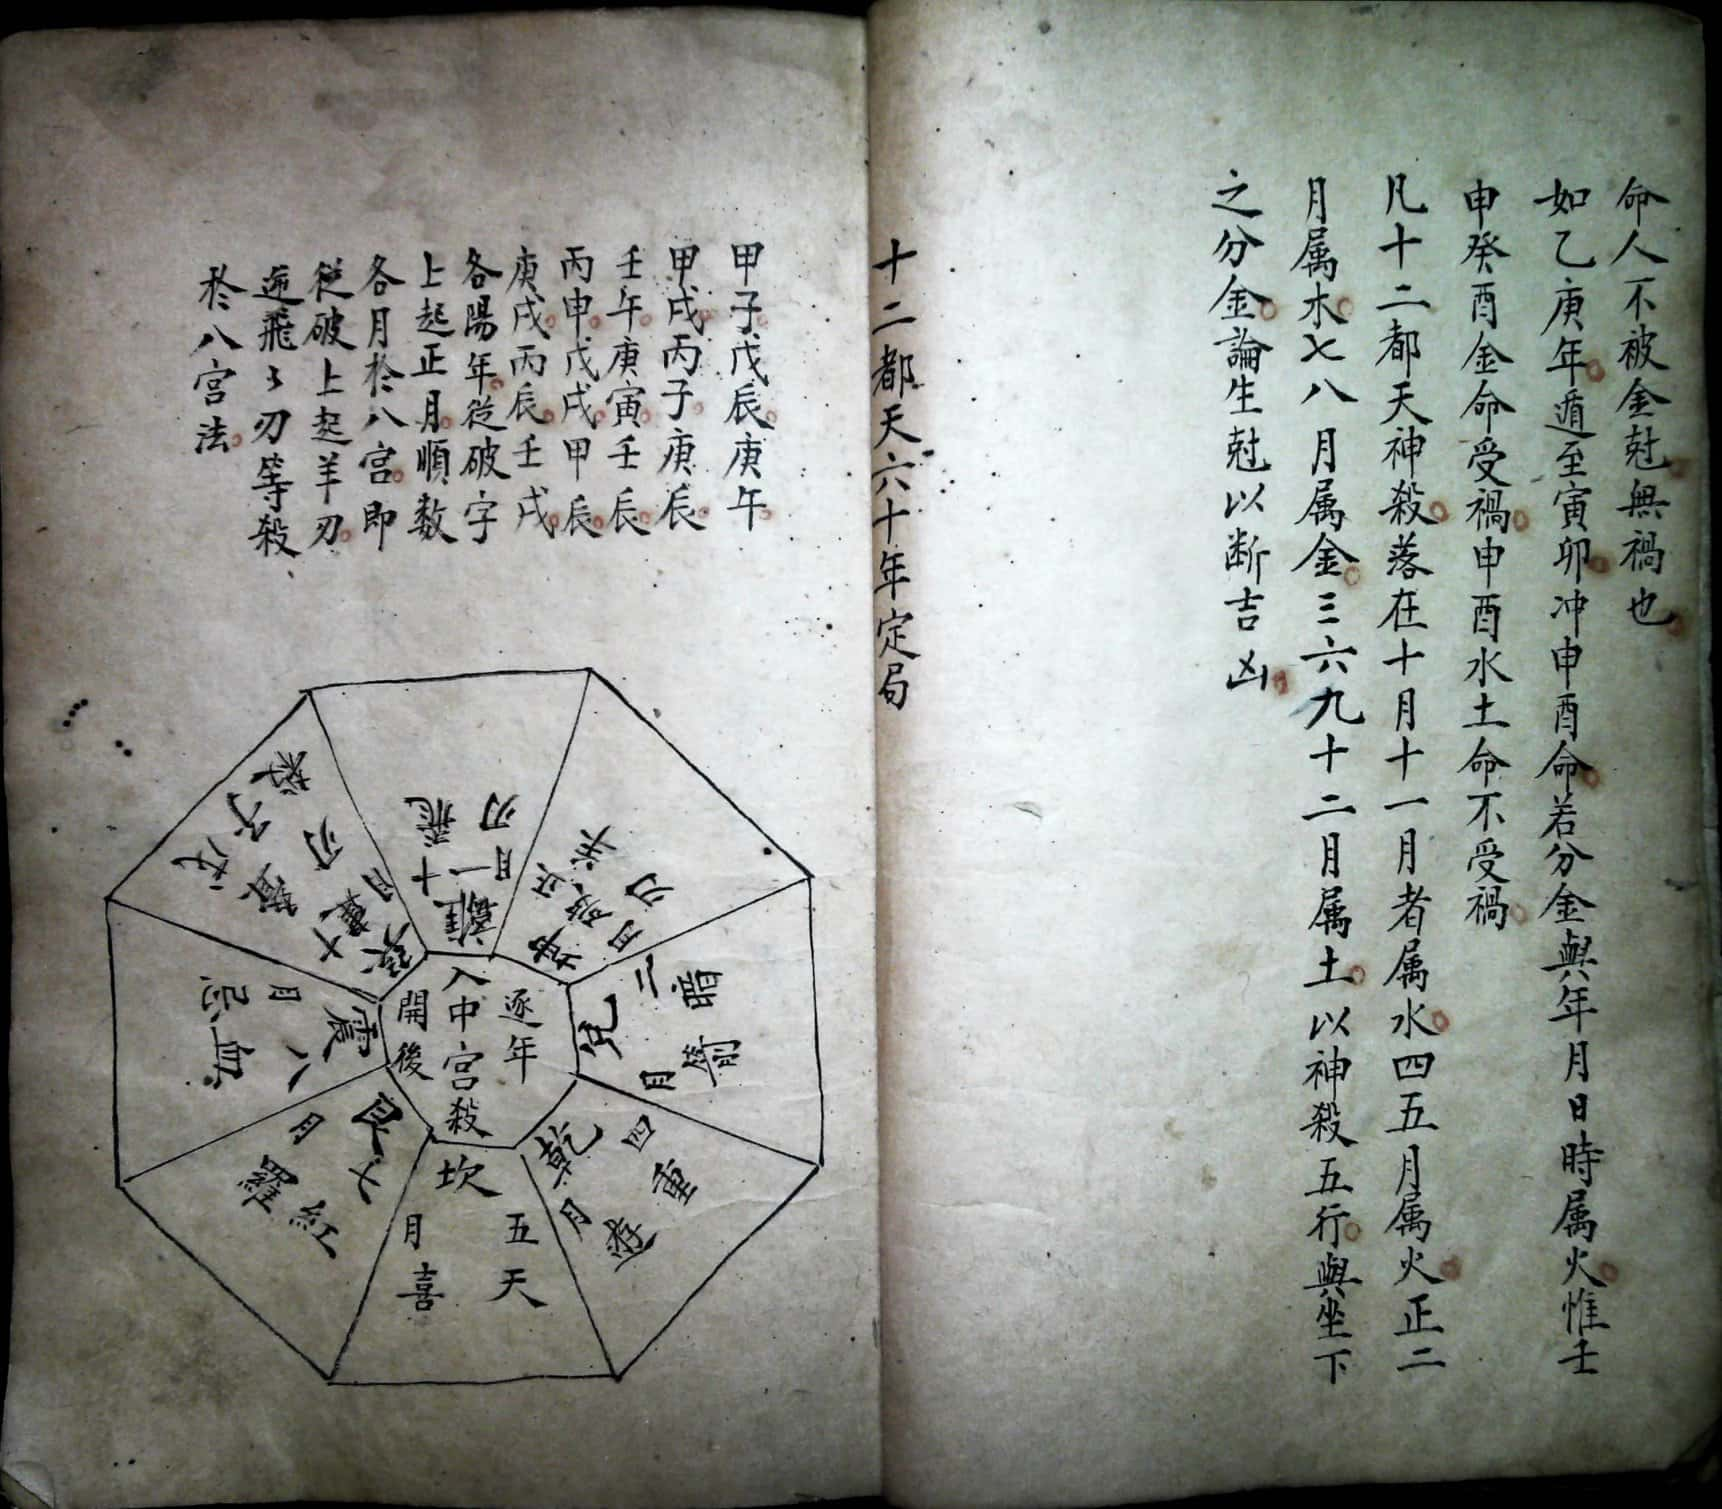 命人不被金尅無禍也
如乙庚年遁至寅卯冲申酉命若分金與年月日時属火惟壬
申癸酉金命受禍申酉水土命不受禍
凡十二都天神殺落在十月十一月者属水四五月属火正二
月属木七八月属金三六九十二月属土以神殺五行與坐下
之分金論生尅以断吉凶
十二都天六十年定局
甲子戊辰庚午
甲戌丙子庚辰
壬午庚寅壬辰
丙申戊戌甲辰
庚戌丙辰壬戌
各陽年從破字
上起正月順数
各月於八宮即
從破上起羊刃
逆飛〻刃等殺
於八宮法
逐年
入中宮殺
開後
離
十一月
飛
刃
坤
破
正月
羊
刃
兌
二
月
暗
乾
四
月
重
坎
五
月
天
喜
艮
七
月
紅
羅
震
八
月
血
忌
巽